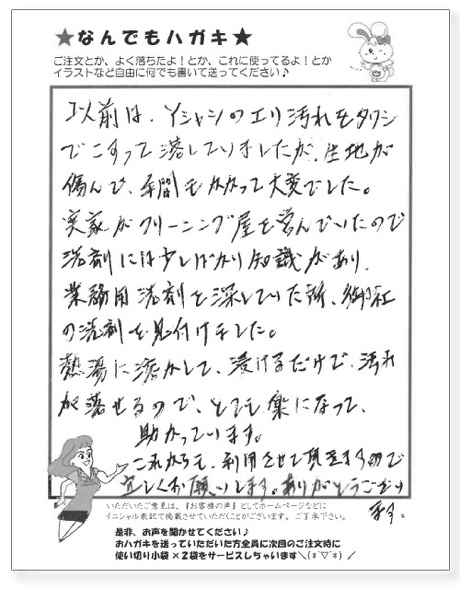 ★なんでもハガキ★
ご注文とか、よく落ちたよ！とか、これに使ってるよ！とか
イラストなど自由に何でも書いて送ってください♪
以前は、Yシャツのエリ汚れをタワシ
でこすって落していましたが、生地が
傷んで、手間もかかって大変でした。
実家がクリーニング屋を営んでいたので
洗剤には少しばかり知識があり、
業務用洗剤を探していた所、御社
の洗剤を見付けました。
熱湯に溶かして、浸けるだけで、汚れ
が落せるので、とても楽になって、
助かっています。
これからも、利用させて頂きますので
宜しくお願いします。ありがとうござい
ます。
いただいたご意見は、『お客様の声』としてホームページなどに
イニシャル表記で掲載させていただくことがございます。ご了承下さい。
是非、お声を聞かせてください♪
おハガキを送っていただいた方全員に次回のご注文時に
使い切り小袋×2袋をサービスしちゃいます＼(*´▽`*)／